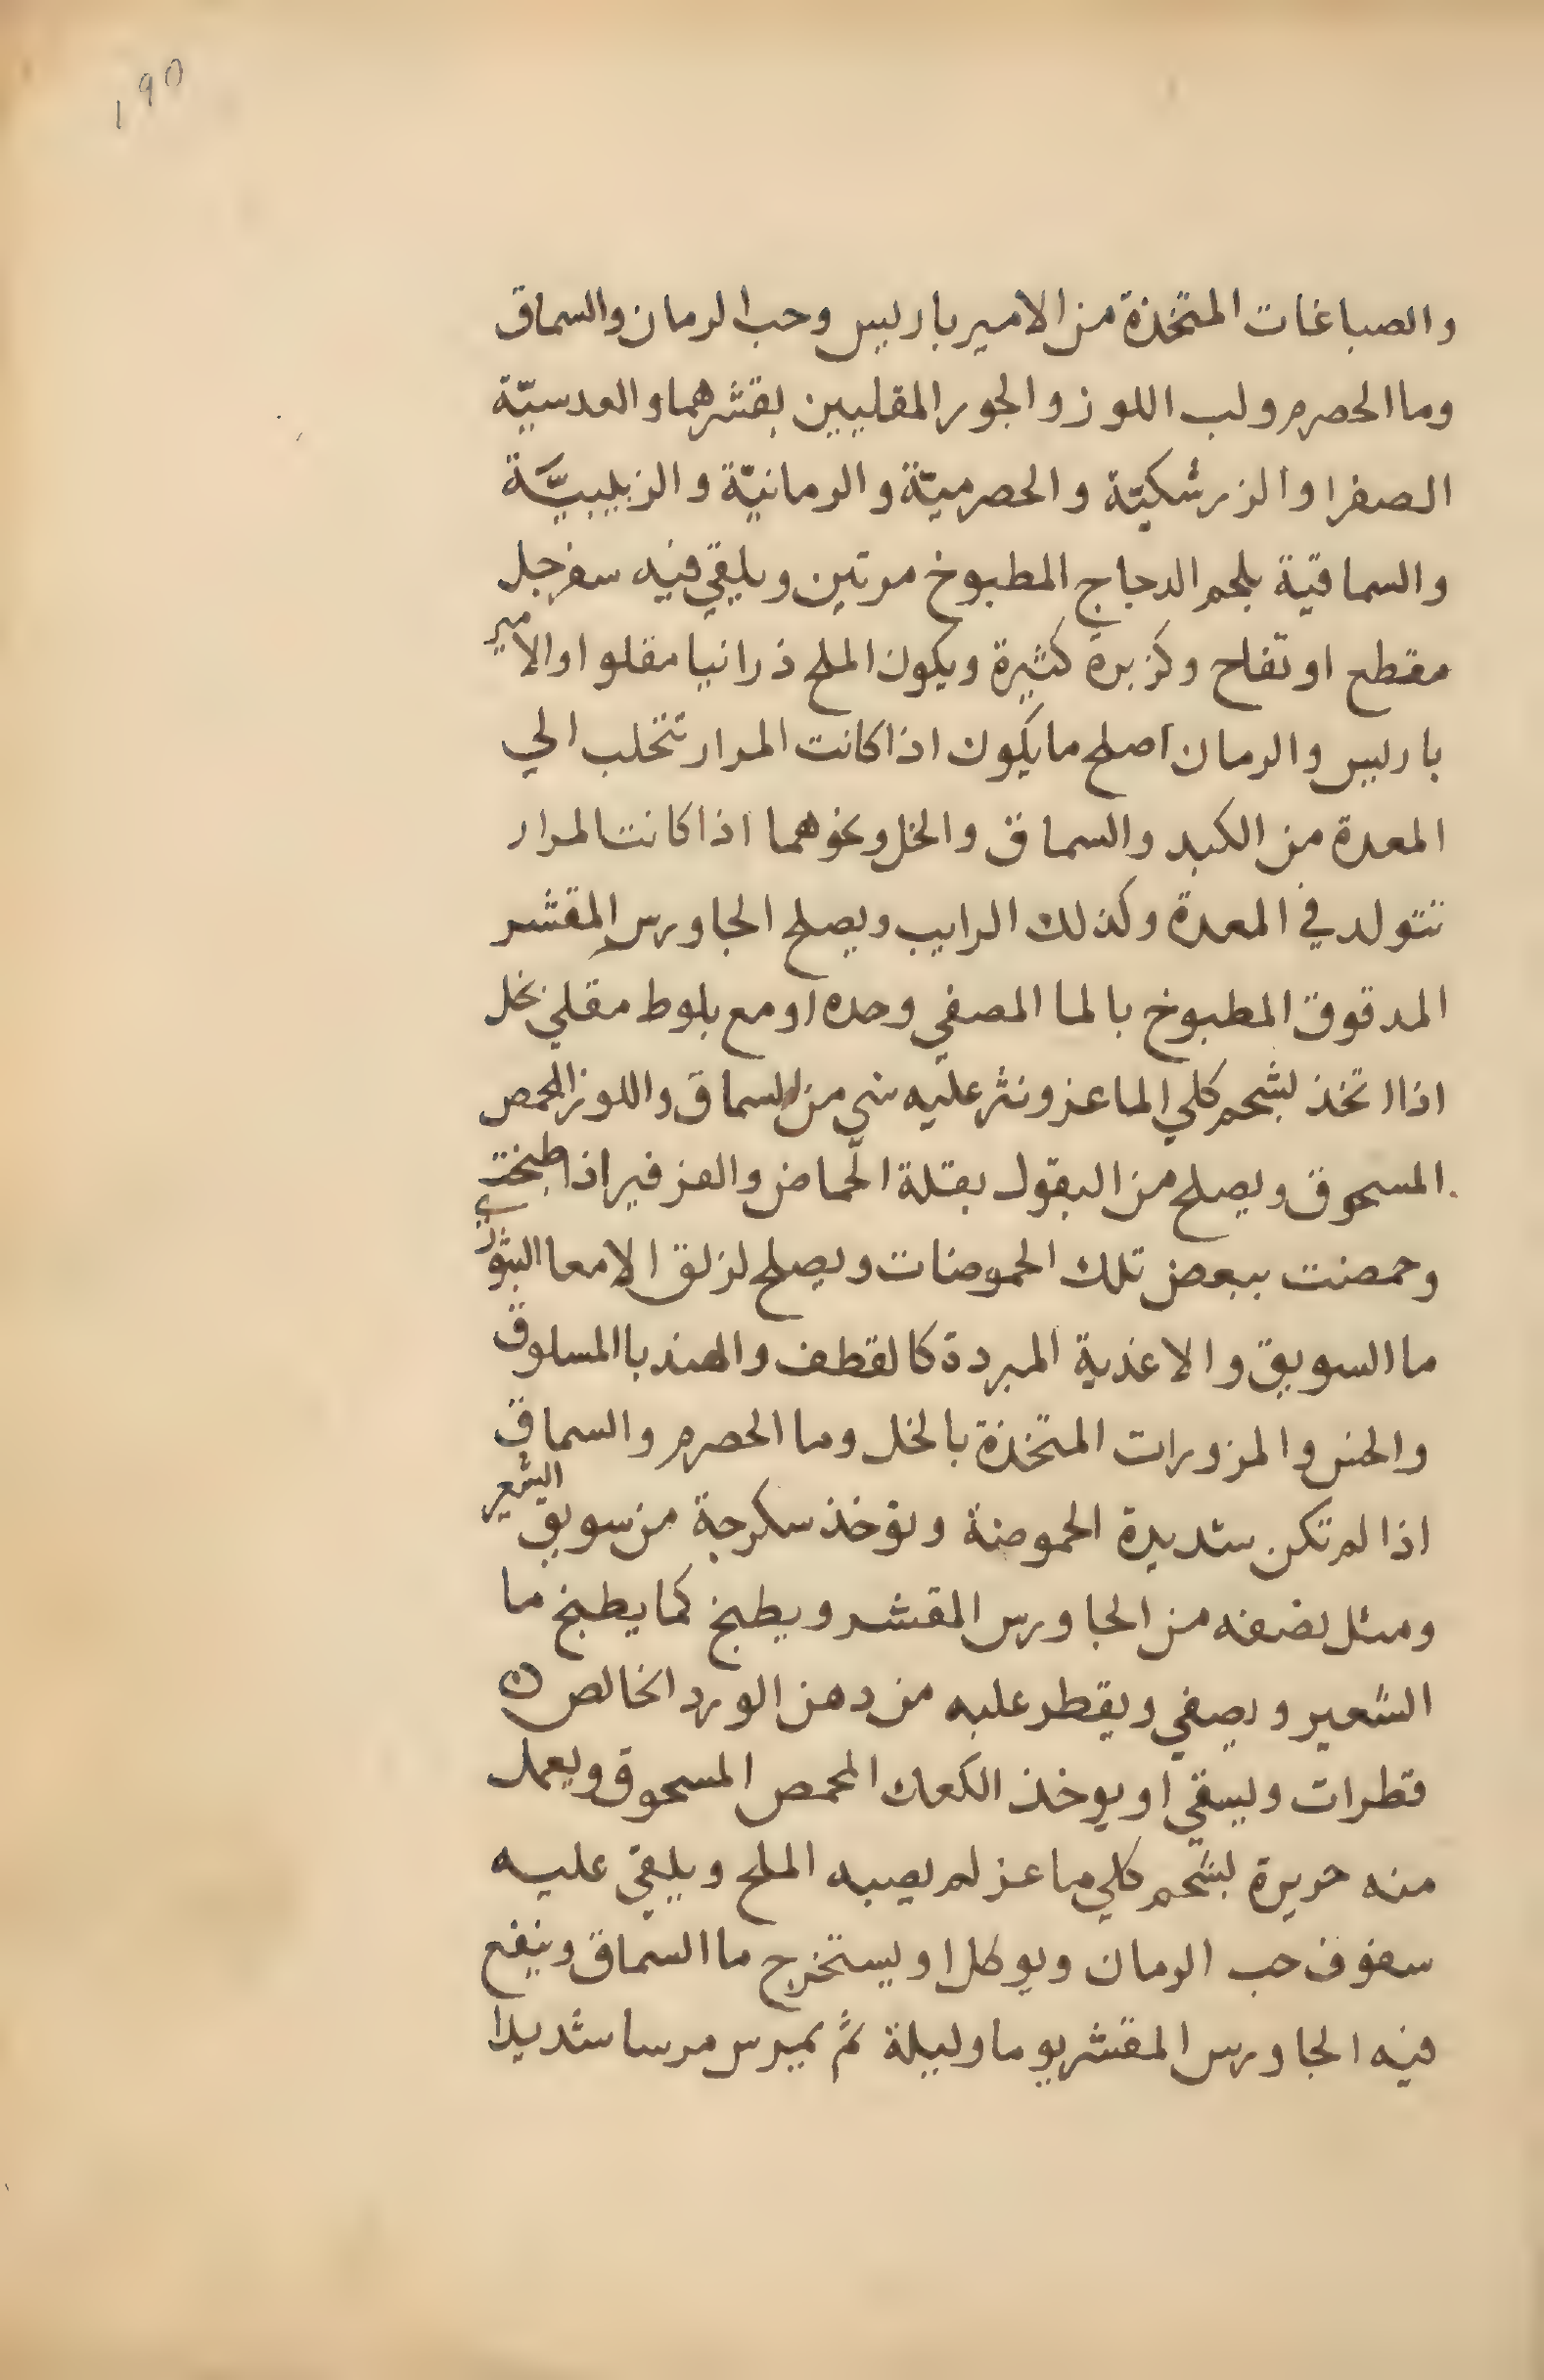 ١٩٥
والصباغات المتخذة من الامير باريس وحب الرمان والسماق
وما الحصرم ولب اللوز والجوز المقليين بقشرهما والعدسيّة
الصفرا والزرشكيّة والحصرميّة والرمانيّة والزبيبيَّة
والسماقية بلحم الدجاج المطبوخ مرتين ويلقي فيه سفرجل
مقطع او تفاح وكزبرة كثيرة ويكون الملح ذرانيا مقلوا والامير
باريس والرمان اصلح ما يكون اذا كانت المرار تتحلب الي
المعدة من الكبد والسماق والخل ونحوهما اذا كانت المرار
تتولد في المعدة وكذلك الرايب ويصلح الجاورس المقشر
المدقوق المطبوخ بالما المصفي وحده او مع بلوط مقلي بخل
اذا اتخذ بشحم كلي الماعز ونثر عليه شي من السماق واللوز المحمص
المسحوق ويصلح من البقول بقلة الحماض والعزفير اذا طبخت
وحمضت ببعض تلك الحموضات ويصلح لزلق الامعا البثوري
ما السويق والاغذية المبردة كالقطف والهندبا المسلوق
والخس والمزورات المتخذة بالخل وما الحصرم والسماق
اذا لم تكن شديدة الحموضة ويؤخذ سكرجة من سويق الشعير
ومثل نصفه من الجاورس المقشر ويطبخ كما يطبخ ما
الشعير ويصفي ويقطر عليه من دهن الورد الخالص
قطرات ويسقي او يوخذ الكعك المحمص المسحوق ويعمل
منه حريرة بشحم كلي ماعز لم يصبه الملح ويلقي عليه
سفوف حب الرمان ويوكل او يستخرج ما السماق وينقع
فيه الجاورس المقشر يوما وليلة ثم يمرس مرسا شديدا